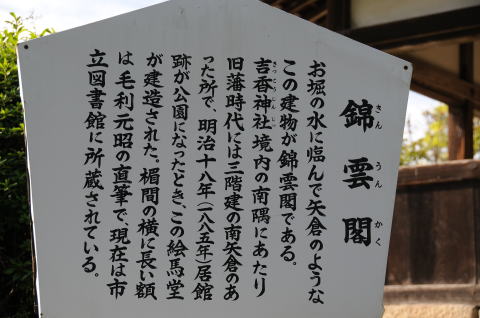 錦雲閣
きん うん かく
お堀の水に臨んで矢倉のような
この建物が錦雲閣である。
吉香神社境内の南隅にあたり
きっこうじんじゃ
旧藩時代には三階建の南矢倉のあ
った所で、明治十八年(一八八五年)居館
跡が公園になったとき、この絵馬堂
が建造された。楣間の横に長い額
は毛利元昭の直筆で、現在は市
立図書館に所蔵されている。